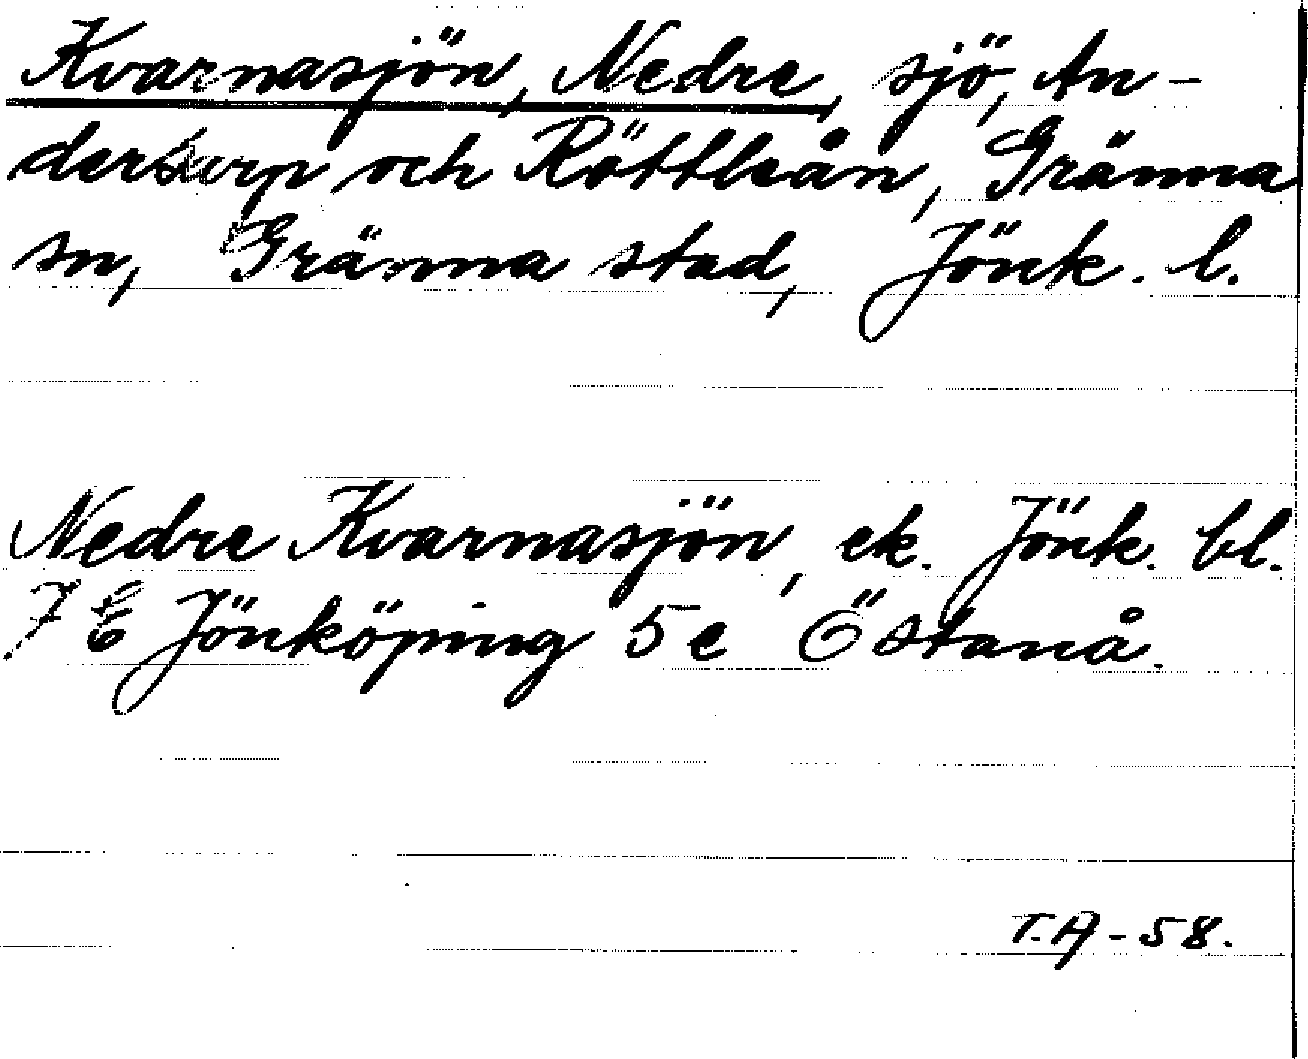 Kvarnasjön, Nedre, sjö, An-
derstorp och Röttleån, Gränna
sn, Gränna stad, Jönk. l.
Nedre Kvarnasjön, ek. Jönk. bl.
7 E Jönköping 5 e Östanå.
T.A-58.